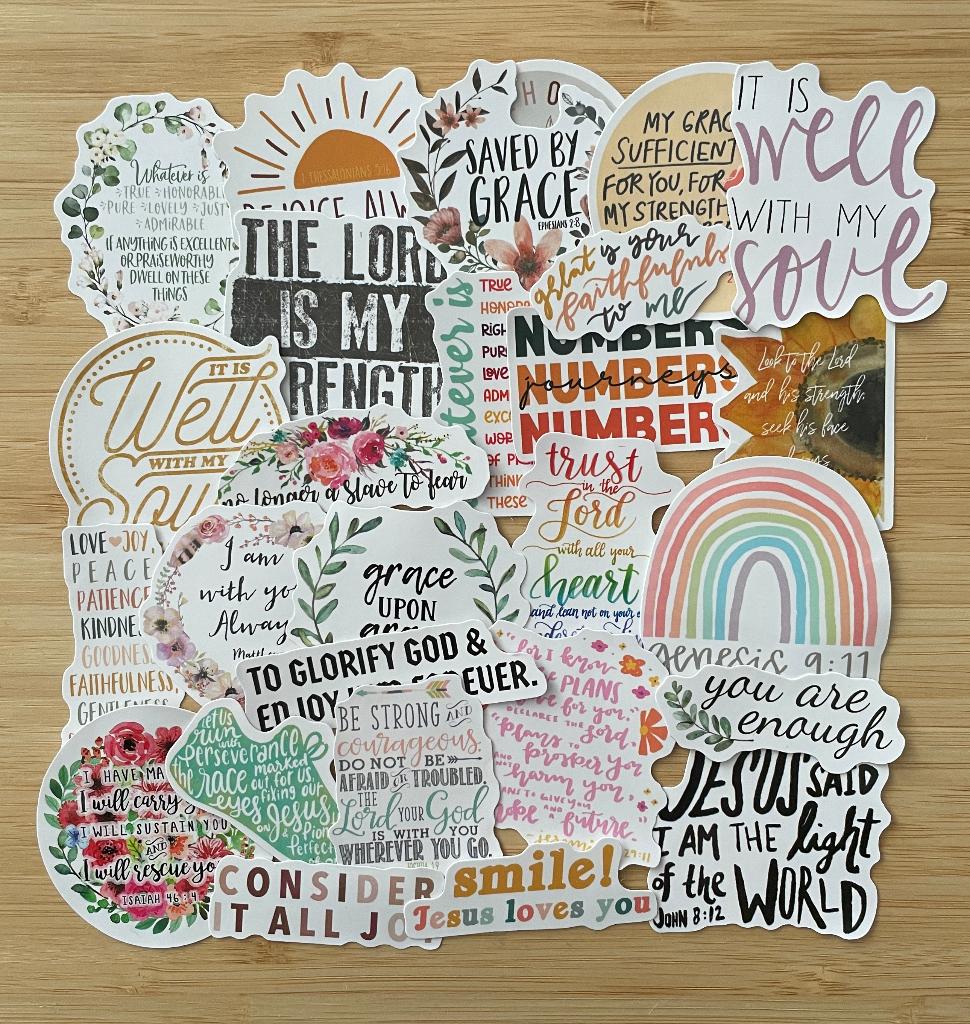 Whatever is
TRUE HONORABL
PURE LOVELY JUST
ADMIRABLE
IF ANYTHING IS EXCELLENT
OR PRAISEWORTHY
DWELL ON THESE
THINGS
1 THESSALONIANS 5:16
REJOICE ALW
HO
SAVED BY
GRACE
EPHESIANS 2:8
MY GRAC
SUFFICIENT
FOR YOU, FOR
MY STRENGTH
IT IS
well
WITH MY
soul
THE LORD
IS MY
RENGTH
great is your
faithfulness
to me
atever is
TRUE
HONOR
RIGH
PUR
LOVE
ADM
EXC
WOR
OF P
THINK
THESE
NUMBERS
NUMBERS
journeys
NUMBER
Look to the Lord
and his strength;
seek his face
IT IS
Well
WITH MY
Soul
no longer a slave to fear
trust
in the
Lord
with all your
heart
and lean not on your o
genesis 9:11
LOVE JOY,
PEACE
PATIENCE
KINDNE
GOODNESS
FAITHFULNESS,
GENTLENESS
I am
with yo
Alway
Matthe
grace
UPON
grac
TO GLORIFY GOD &
ENJOY HIM FOREVER.
for I know
the PLANS
I have for you,"
DECLARES THE Lord,
"plans to
prosper you
and not to
harm you,
PLANS TO GIVE YOU
hope AND a future."
29:11
you are
enough
I HAVE MA
I will carry y
I WILL SUSTAIN YOU
AND
I will rescue yo
ISAIAH 46:4
let us
run
with
perseverance
the race marked
out for us,
fixing our
eyes on Jesus
perfect
BE STRONG AND
courageous.
DO NOT BE
AFRAID OR TROUBLED.
THE
Lord YOUR God
IS WITH YOU
WHEREVER YOU GO.
JESUS SAID
I AM THE light
of the WORLD
JOHN 8:12
CONSIDER
IT ALL JO
smile!
Jesus loves you